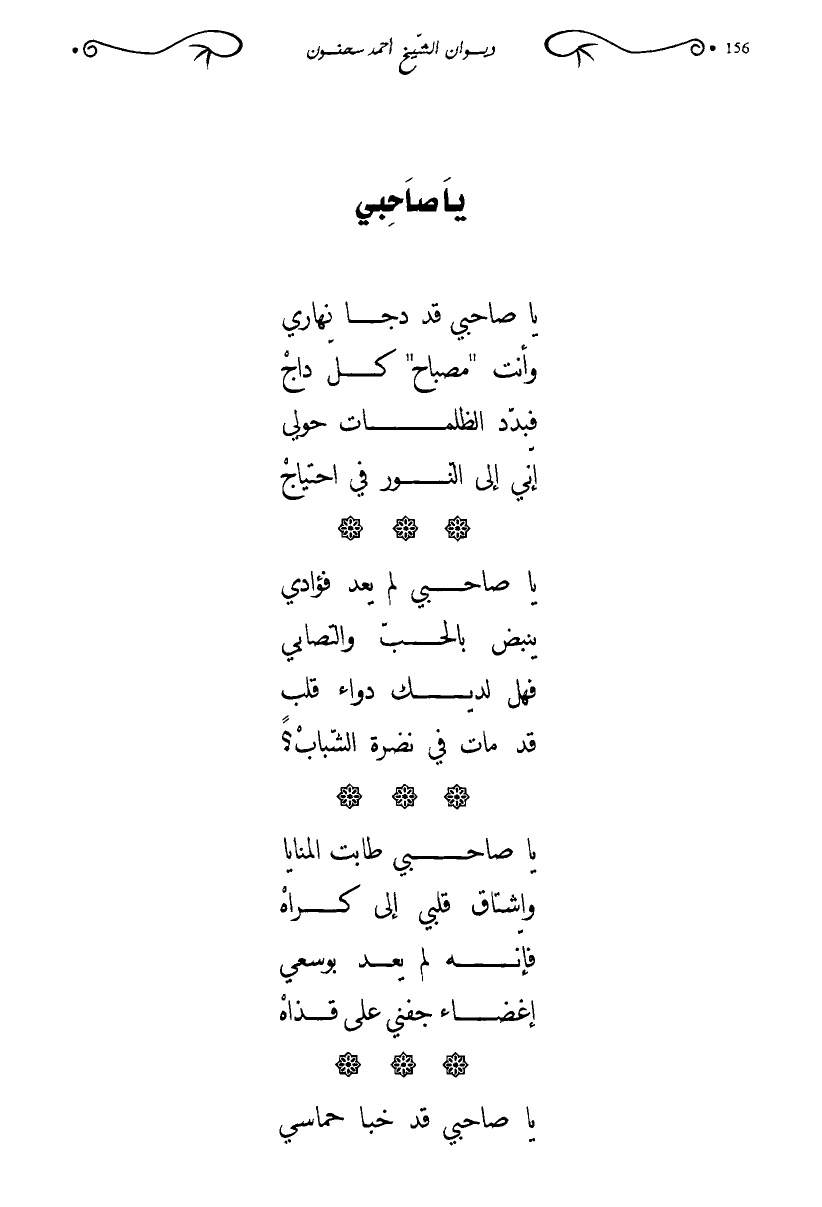 156 ديوان الشّيخ أحمد سحنون
يَا صَاحِبي
يا صاحبي قد دجا نهاري
وأنت "مصباح" كلّ داجْ
فبدّد الظلمات حولي
إنّي إلى النّور في احتياجْ
يا صاحبي لم يعد فؤادي
ينبض بالحبّ والتّصابي
فهل لديك دواء قلب
قد مات في نضرة الشّبابْ؟
يا صاحبي طابت المنايا
واشتاق قلبي إلى كراهْ
فإنّه لم يعد بوسعي
إغضاء جفني على قذاهْ
يا صاحبي قد خبا حماسي